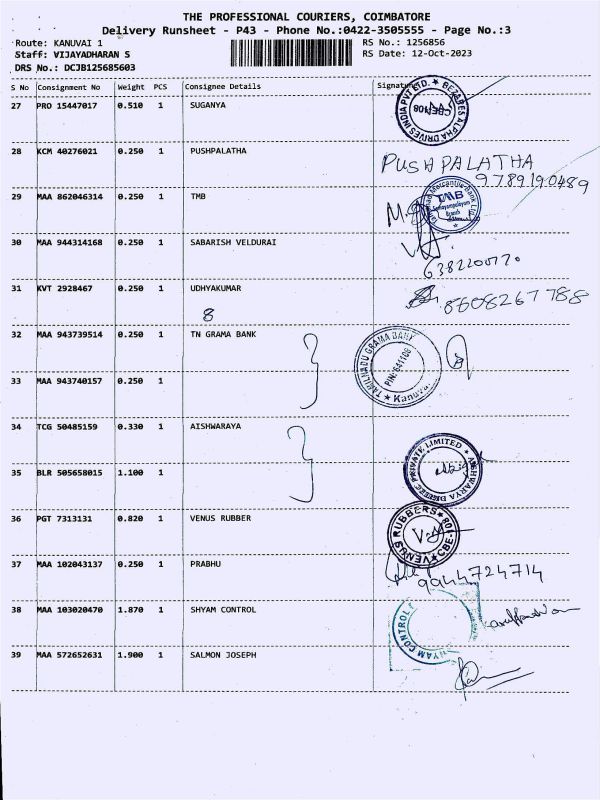 THE PROFESSIONAL COURIERS, COIMBATORE
Delivery Runsheet - P43 - Phone No.:0422-3505555 - Page No.:3
Route: KANUVAI 1
RS No.: 1256856
Staff: VIJAYADHARAN S
RS Date: 12-Oct-2023
DRS No.: DCJB125685603
S No Consignment No Weight PCS Consignee Details Signature
27 PRO 15447017 0.510 1 SUGANYA
28 KCM 40276021 0.250 1 PUSHPALATHA
PUSHPALATHA
9789190489
29 MAA 862046314 0.250 1 TMB
TMB
Branch
30 MAA 944314168 0.250 1 SABARISH VELDURAI
31 KVT 2928467 0.250 1 UDHYAKUMAR
8608267788
8
32 MAA 943739514 0.250 1 TN GRAMA BANK
TAMILNADU GRAMA BANK
PIN: 641108
Kanuvai
33 MAA 943740157 0.250 1
34 TCG 50485159 0.330 1 AISHWARAYA
PRIVATE LIMITED
35 BLR 505658015 1.100 1
36 PGT 7313131 0.820 1 VENUS RUBBER
VENUS RUBBERS
37 MAA 102043137 0.250 1 PRABHU
9944724714
38 MAA 103020470 1.870 1 SHYAM CONTROL
SHYAM CONTROL
39 MAA 572652631 1.900 1 SALMON JOSEPH